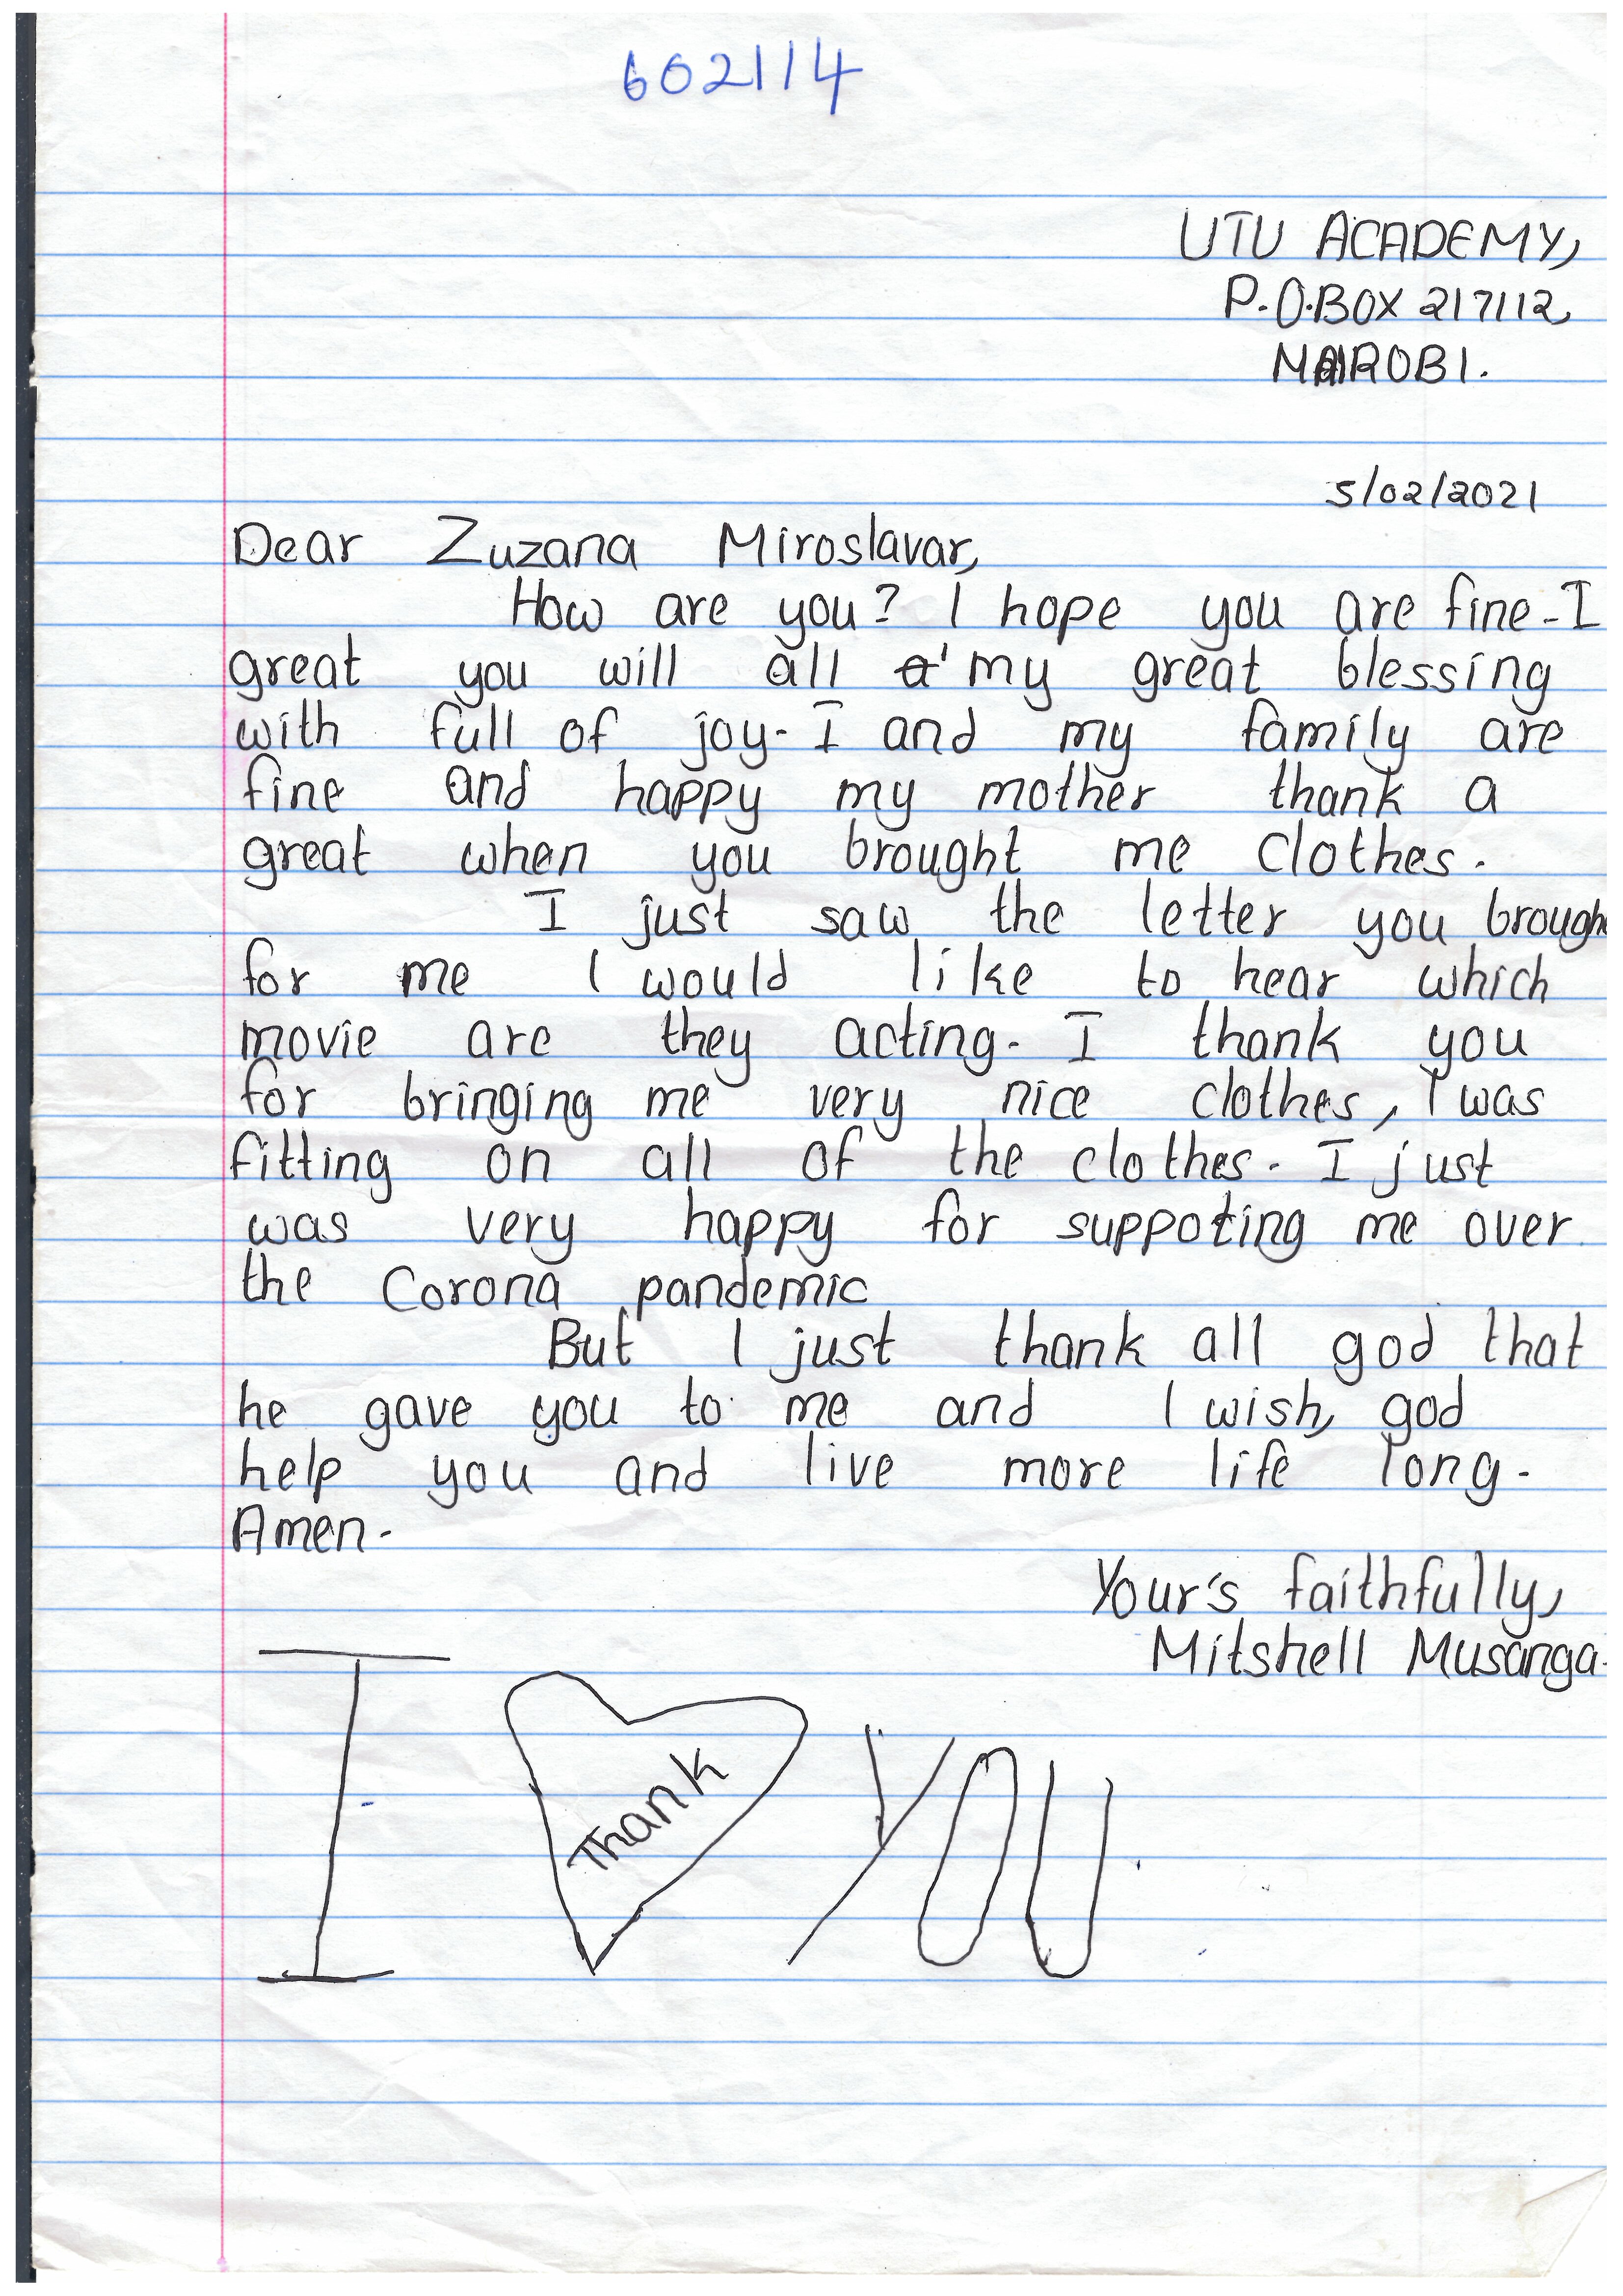 602114
UTU ACADEMY,
P.O.BOX 217112,
NAIROBI.
5/02/2021
Dear Zuzana Miroslavar,
How are you? I hope you are fine. I
great you will all my great blessing
with full of joy. I and my family are
fine and happy my mother thank a
great when you brought me clothes.
I just saw the letter you brough
for me I would like to hear which
movie are they acting. I thank you
for bringing me very nice clothes, I was
fitting on all of the clothes. I just
was very happy for suppoting me over
the Corona pandemic
But I just thank all god that
he gave you to me and I wish, god
help you and live more life long.
Amen.
Your's faithfully,
Mitshell Musanga.
I Thank YOU